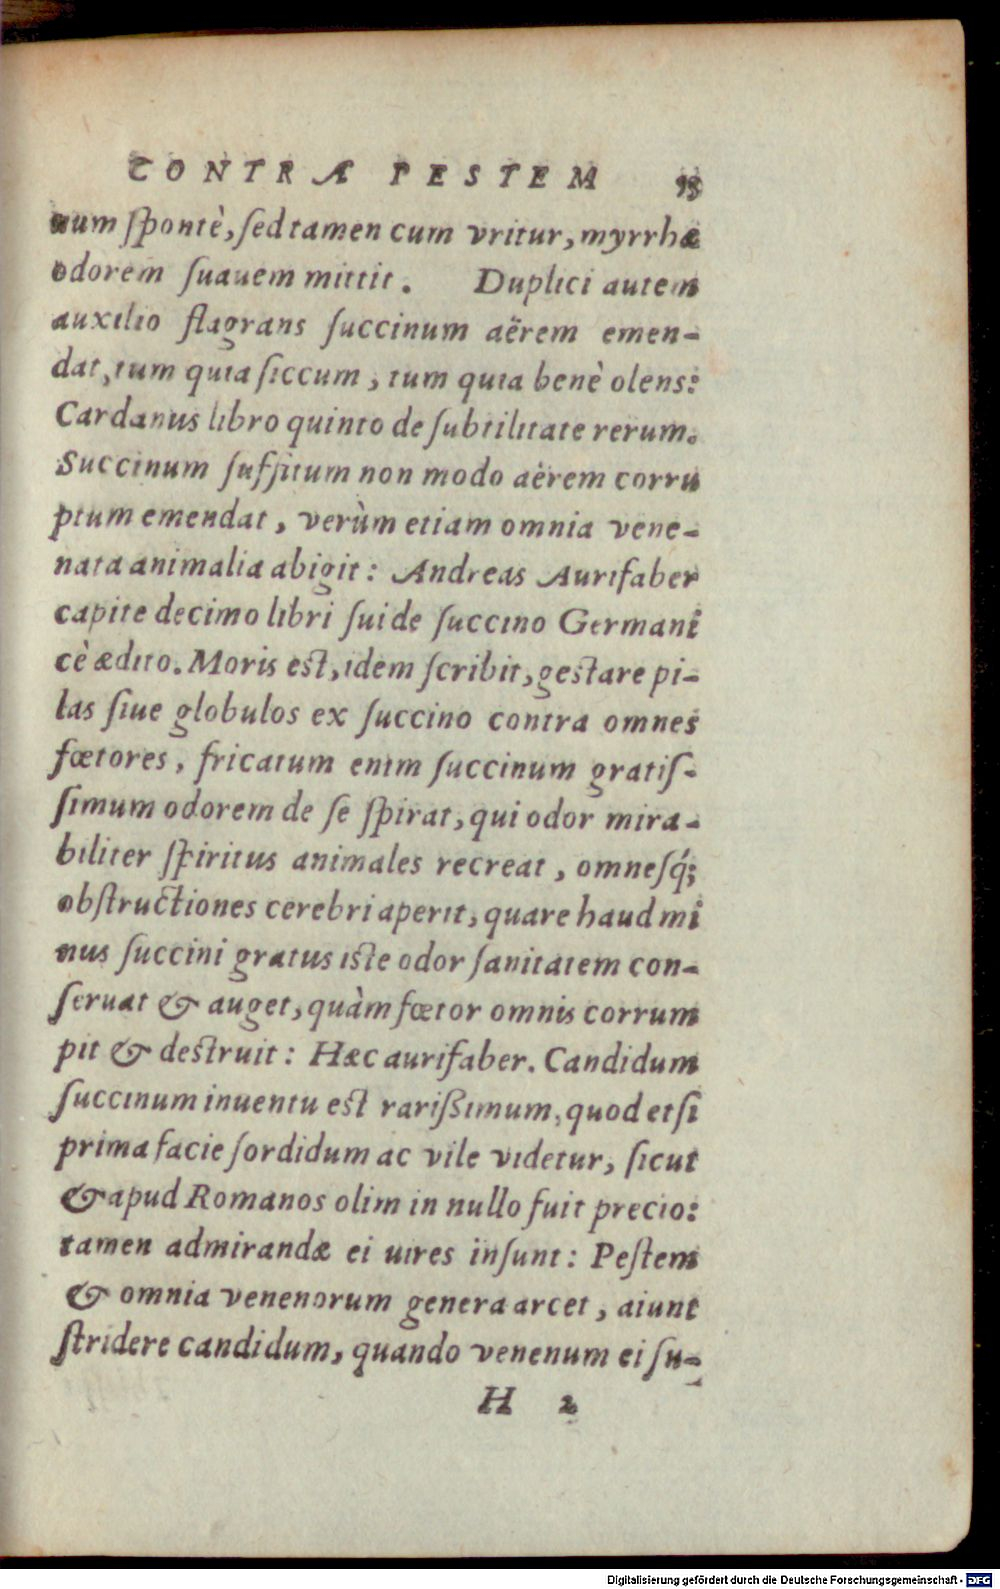 CONTRA PESTEM
num ſpontè, ſed tamen cum vritur, myrrhæ
odorem ſuauem mittit. Duplici autem
auxilio flagrans ſuccinum aërem emen-
dat, tum quia ſiccum, tum quia benè olens:
Cardanus libro quinto de ſubtilitate rerum.
Succinum ſuffitum non modo aërem corru
ptum emendat, verùm etiam omnia vene-
nata animalia abigit: Andreas Aurifaber
capite decimo libri ſui de ſuccino Germani
cè ædito. Moris eſt, idem ſcribit, geſtare pi-
las ſiue globulos ex ſuccino contra omnes
fœtores, fricatum enim ſuccinum gratiſ-
ſimum odorem de ſe ſpirat, qui odor mira-
biliter ſpiritus animales recreat, omneſq́;
obſtructiones cerebri aperit, quare haud mi
nus ſuccini gratus iſte odor ſanitatem con-
ſeruat & auget, quàm fœtor omnis corrum
pit & deſtruit: Hæc aurifaber. Candidum
ſuccinum inuentu eſt rariſsimum, quod etſi
prima facie ſordidum ac vile videtur, ſicut
& apud Romanos olim in nullo fuit precio:
tamen admirandæ ei uires inſunt: Peſtem
& omnia venenorum genera arcet, aiunt
ſtridere candidum, quando venenum ei ſu-
H 2
Digitalisierung gefördert durch die Deutsche Forschungsgemeinschaft - DFG